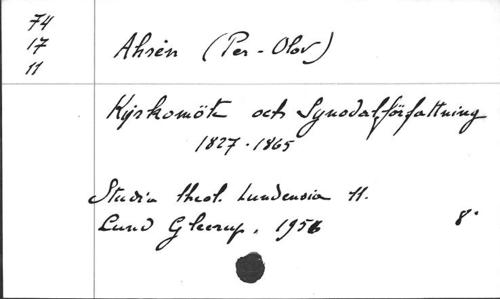 74
17
11
Ahrén (Per-Olov)
Kyrkomöte och Synodalförfattning
1827-1865
Studia theol. Lundensia 11.
Lund Gleerup, 1956 8°